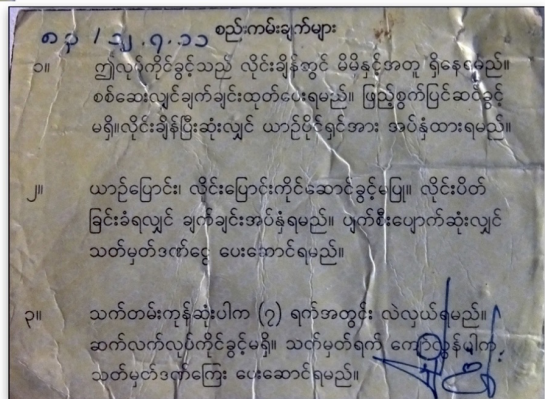 ၈၃ / ၁၂.၇.၁၁ စည်းကမ်းချက်များ
၁။ ဤလုပ်ကိုင်ခွင့်သည် လိုင်းချိန်တွင် မိမိနှင့်အတူ ရှိနေရမည်။
စစ်ဆေးလျှင်ချက်ချင်းထုတ်ပေးရမည်။ ဖြည့်စွက်ပြင်ဆင်ခွင့်
မရှိ။လိုင်းချိန်ပြီးဆုံးလျှင် ယာဉ်ပိုင်ရှင်အား အပ်နှံထားရမည်။
၂။ ယာဉ်ပြောင်း၊ လိုင်းပြောင်းကိုင်ဆောင်ခွင့်မပြု။ လိုင်းပိတ်
ခြင်းခံရလျှင် ချက်ချင်းအပ်နှံရမည်။ ပျက်စီးပျောက်ဆုံးလျှင်
သတ်မှတ်ဒဏ်ငွေ ပေးဆောင်ရမည်။
၃။ သက်တမ်းကုန်ဆုံးပါက (၇) ရက်အတွင်း လဲလှယ်ရမည်။
ဆက်လက်လုပ်ကိုင်ခွင့်မရှိ။ သတ်မှတ်ရက် ကျော်လွန်ပါက
သတ်မှတ်ဒဏ်ကြေး ပေးဆောင်ရမည်။